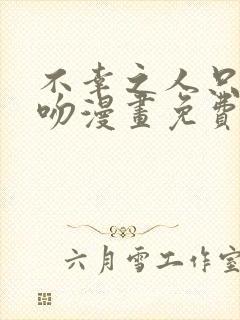 不幸之人只
吻漫畫免費
六月雪工作室